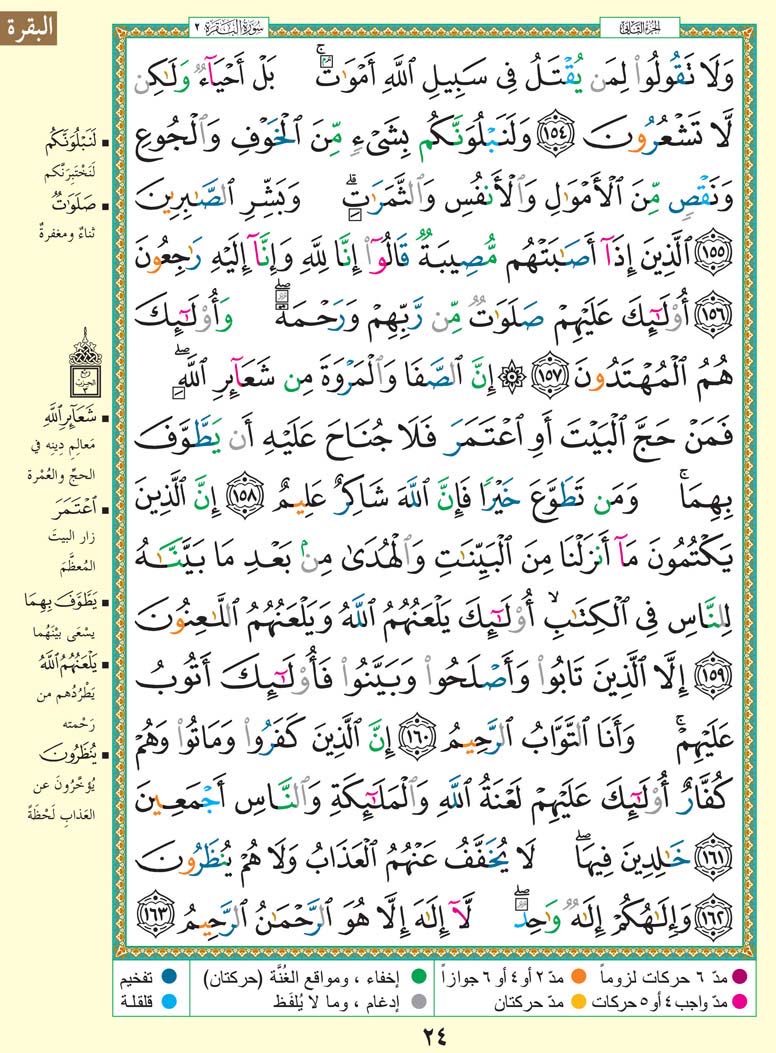 البقرة
سورة البقرة ٢
الجزء الثاني
وَلَا تَقُولُوا۟ لِمَن يُقْتَلُ فِى سَبِيلِ ٱللَّهِ أَمْوَٰتٌۢ ۚ بَلْ أَحْيَآءٌ وَلَـٰكِن
لَّا تَشْعُرُونَ ﴿١٥٤﴾ وَلَنَبْلُوَنَّكُم بِشَىْءٍ مِّنَ ٱلْخَوْفِ وَٱلْجُوعِ
وَنَقْصٍ مِّنَ ٱلْأَمْوَٰلِ وَٱلْأَنفُسِ وَٱلثَّمَرَٰتِ ۗ وَبَشِّرِ ٱلصَّـٰبِرِينَ
﴿١٥٥﴾ ٱلَّذِينَ إِذَآ أَصَـٰبَتْهُم مُّصِيبَةٌ قَالُوٓا۟ إِنَّا لِلَّهِ وَإِنَّآ إِلَيْهِ رَٰجِعُونَ
﴿١٥٦﴾ أُو۟لَـٰٓئِكَ عَلَيْهِمْ صَلَوَٰتٌ مِّن رَّبِّهِمْ وَرَحْمَةٌ ۖ وَأُو۟لَـٰٓئِكَ
هُمُ ٱلْمُهْتَدُونَ ﴿١٥٧﴾ ۞ إِنَّ ٱلصَّفَا وَٱلْمَرْوَةَ مِن شَعَآئِرِ ٱللَّهِ ۖ
فَمَنْ حَجَّ ٱلْبَيْتَ أَوِ ٱعْتَمَرَ فَلَا جُنَاحَ عَلَيْهِ أَن يَطَّوَّفَ
بِهِمَا ۚ وَمَن تَطَوَّعَ خَيْرًا فَإِنَّ ٱللَّهَ شَاكِرٌ عَلِيمٌ ﴿١٥٨﴾ إِنَّ ٱلَّذِينَ
يَكْتُمُونَ مَآ أَنزَلْنَا مِنَ ٱلْبَيِّنَـٰتِ وَٱلْهُدَىٰ مِنۢ بَعْدِ مَا بَيَّنَّـٰهُ
لِلنَّاسِ فِى ٱلْكِتَـٰبِ ۙ أُو۟لَـٰٓئِكَ يَلْعَنُهُمُ ٱللَّهُ وَيَلْعَنُهُمُ ٱللَّـٰعِنُونَ
﴿١٥٩﴾ إِلَّا ٱلَّذِينَ تَابُوا۟ وَأَصْلَحُوا۟ وَبَيَّنُوا۟ فَأُو۟لَـٰٓئِكَ أَتُوبُ
عَلَيْهِمْ ۚ وَأَنَا ٱلتَّوَّابُ ٱلرَّحِيمُ ﴿١٦٠﴾ إِنَّ ٱلَّذِينَ كَفَرُوا۟ وَمَاتُوا۟ وَهُمْ
كُفَّارٌ أُو۟لَـٰٓئِكَ عَلَيْهِمْ لَعْنَةُ ٱللَّهِ وَٱلْمَلَـٰٓئِكَةِ وَٱلنَّاسِ أَجْمَعِينَ
﴿١٦١﴾ خَـٰلِدِينَ فِيهَا ۖ لَا يُخَفَّفُ عَنْهُمُ ٱلْعَذَابُ وَلَا هُمْ يُنظَرُونَ
﴿١٦٢﴾ وَإِلَـٰهُكُمْ إِلَـٰهٌ وَٰحِدٌ ۖ لَّآ إِلَـٰهَ إِلَّا هُوَ ٱلرَّحْمَـٰنُ ٱلرَّحِيمُ ﴿١٦٣﴾
لَنَبْلُوَنَّكُم
لَنَخْتَبِرَنَّكم
صَلَوَٰتٌ
ثناءٌ ومغفرةٌ
ربع
الحزب
٣
شَعَآئِرِ ٱللَّهِ
مَعالِمِ دِينِه في
الحجِّ والعُمْرة
ٱعْتَمَرَ
زار البيتَ
المُعظَّمَ
يَطَّوَّفَ بِهِمَا
يسْعَى بيْنَهُما
يَلْعَنُهُمُ ٱللَّهُ
يَطْرُدُهم من
رَحْمته
يُنظَرُونَ
يُؤخَّرُونَ عن
العَذابِ لَحْظَةً
مدّ ٦ حركات لزوماً
مدّ ٢ أو ٤ أو ٦ جوازاً
إخفاء ، ومواقع الغُنَّة (حركتان)
تفخيم
مدّ واجب ٤ أو ٥ حركات
مدّ حركتان
إدغام ، وما لا يُلفَظ
قلقلة
٢٤